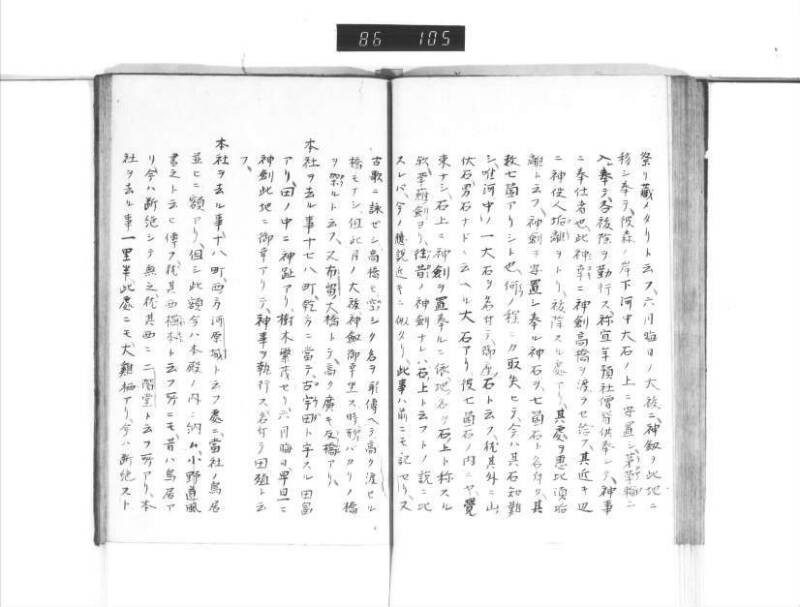 86 105
祭リ蔵メタリト云フ、六月晦日ノ大祓ニ、神劔ヲ此地ニ
移シ奉テ、彼森ノ岸下河中大石ノ上ニ安置シ、茅輪ニ
入奉テ、各祓除ヲ勤行ス、祢宜年預社僧皆供奉シテ、神事
ニ奉仕者也、此神幸ニ神劔高橋ヲ渡ラセ給フ、其近キ辺
ニ神使人垢離ヲトリ、祓除スル処アリ、其処ヲ恵比須垢
離ト云フ、神劔ヲ安置シ奉ル神石ヲ、七箇石ト名付ク、其
数七箇アリシト也、何ノ程ニカ取失ヒテ、今ハ其石知難
シ、唯河中ノ一大石ヲ名付テ、御座石ト云フ、代其外ニ山
伏石男石ナドト云ヘル大石アリ、彼七箇石ノ内ニヤ、覺
束ナシ、石上ニ神劔ヲ置奉ルニ依、地名ヲ石上ト称スル
歟、
スレバ、今ノ説近キニ似タリ、此事ハ前ニモ記セリ、
古歌ニ詠ゼシ高橋モ空シク名ヲ耳傳ヘテ、高ク渡セル
橋モナシ、但此月ノ大祓神劔御幸里ス、時形バカリノ橋
ヲ架ルト云フ、又布留大橋トテ、高ク廣キ反橋アリ、
本社ヲ去ル事十七八町、乾方ニ當テ、古宇田ト字スル田畠
アリ、田ノ中ニ神趾アリ、樹木繁茂セリ、六月晦日早旦ニ
神劔此地ニ御幸アリテ、神事ヲ執行ス、名付ケ田殖ト云
フ、
本社ヲ去ル事十八町、西方河原城ト云フ処ニ當社ノ鳥居
並ヒニ額アリ、但シ此額今ハ本殿ノ内ニ納ム、小野道風
書之ト云ヒ傳フ、代其西橋本ト云フ所ニモ、昔ハ鳥居ア
リ、今ハ断絶シテ無之、代其西ニ二階堂ト云フ所アリ、本
社ヲ去ル事一里半此處ニモ大鷄栖アリ、今ハ断絶スト